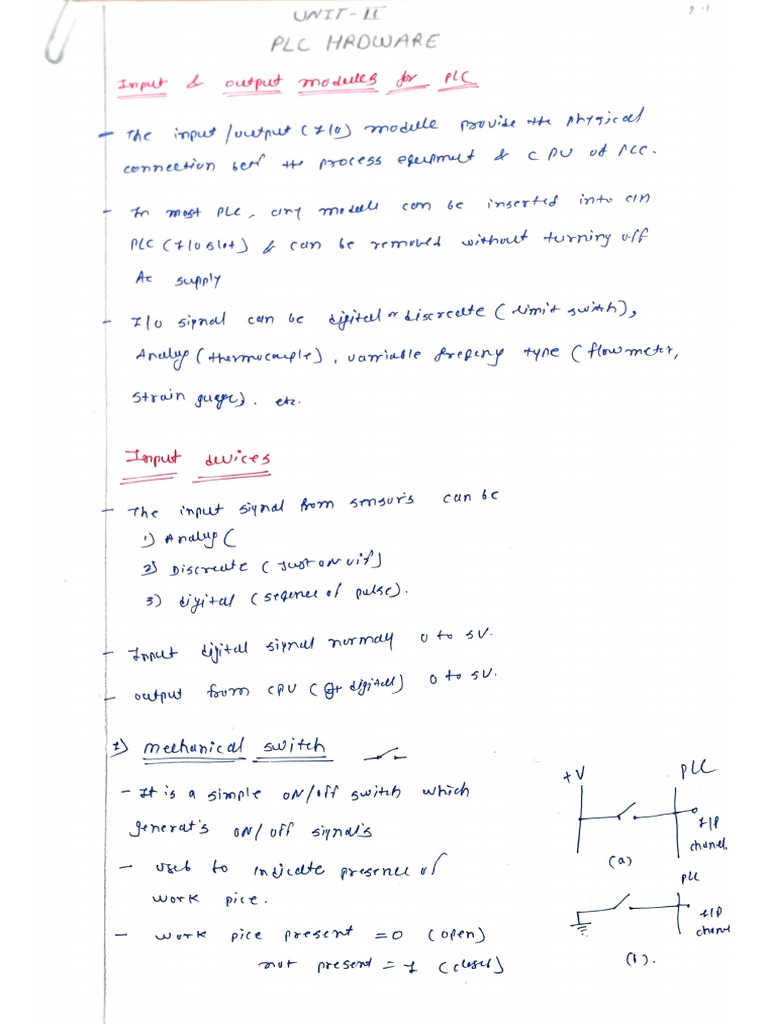 UNIT-II
PLC HRDWARE
Input & output modules for PLC
- The input/output (I/O) module provide the physical
connection betn the process equipment & CPU of PLC.
- In most PLC, any module can be inserted into an
PLC (I/O slot) & can be removed without turning off
Ac supply
- I/O signal can be digital or discreate (limit switch),
Analog (thermocouple), variable freqeny type (flowmeter,
strain guage). etc.
Input devices
- The input signal from sensors can be
1) Analog (
2) Discreate (Just on off)
3) digital (seqence of pulse).
- Input digital signal normay 0 to 5V.
- output from CPU ( digital) 0 to 5V.
1) mechanical switch
- It is a simple ON/Off switch which
generat's ON/Off signal's
- used to indicate presence of
work pice.
- work pice present = 0 (open)
not present = 1 (closed)
+V PLC
I/P
chanel.
(a)
PLC
I/P
chanel
(b).